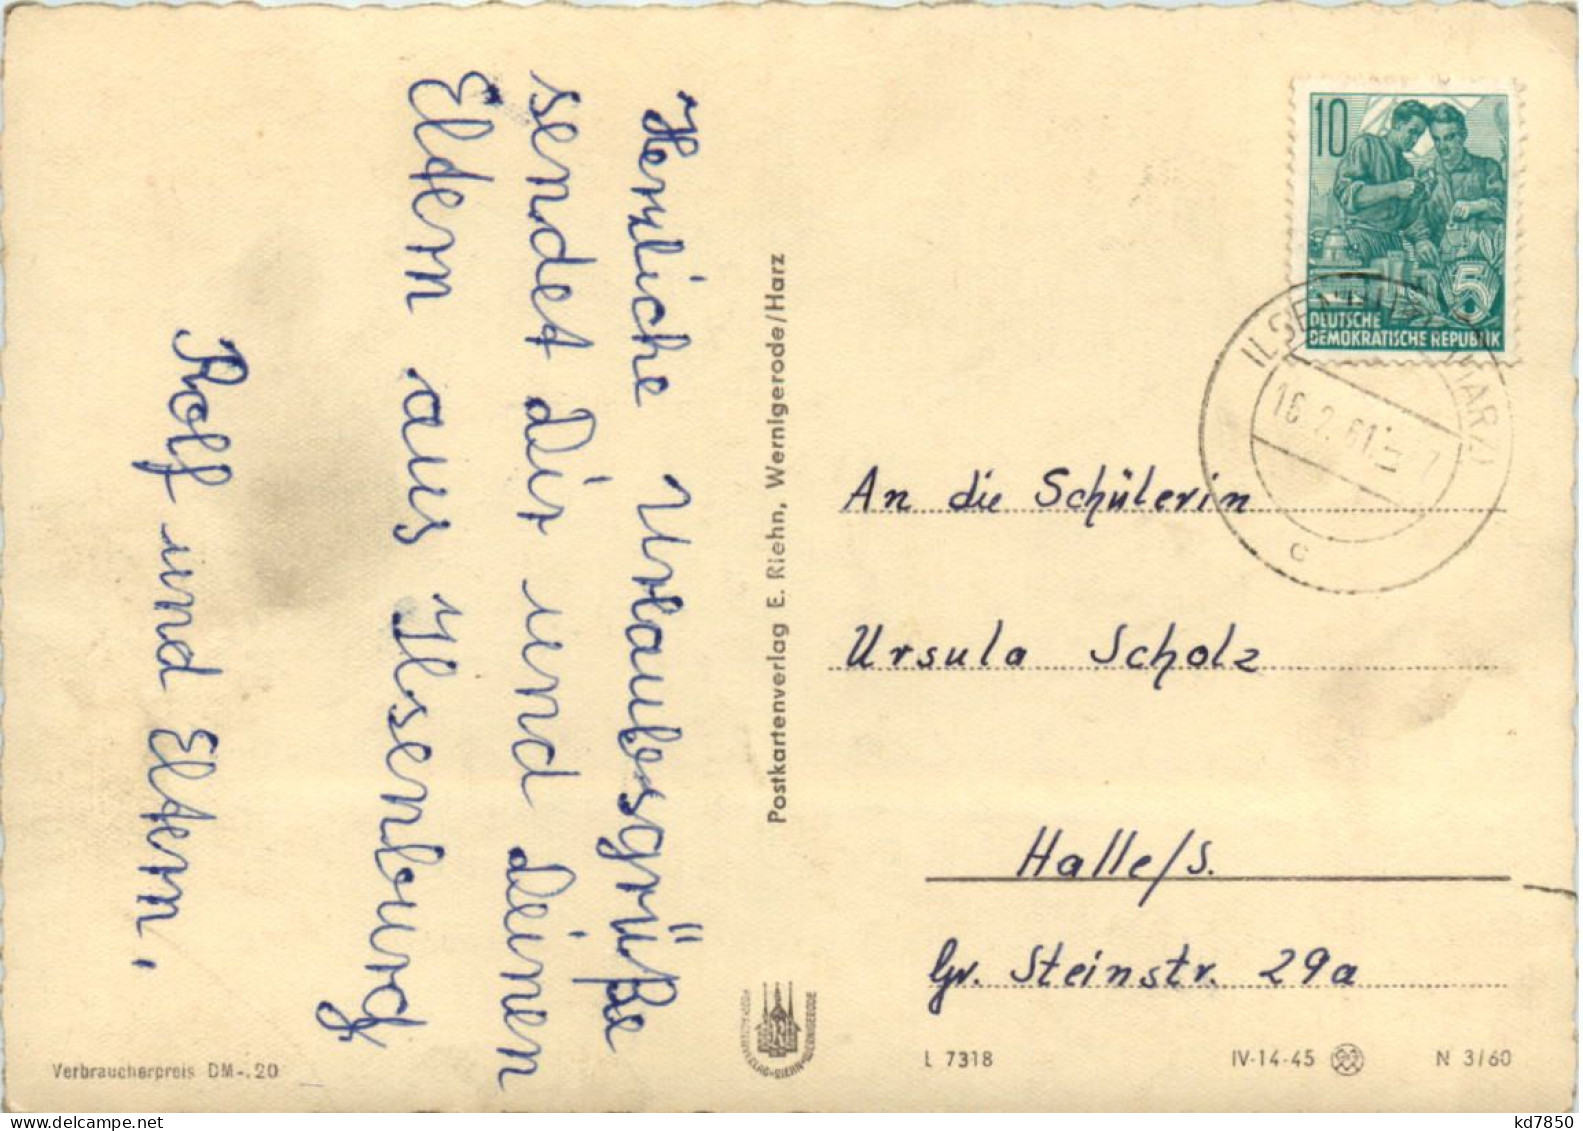 Herzliche Urlaubsgrüße
sendet Dir und deinen
Eltern aus Ilsenburg
Rolf und Eltern.
Verbraucherpreis DM -.20
Postkartenverlag E. Riehn, Wernigerode/Harz
10
5
DEUTSCHE
DEMOKRATISCHE REPUBLIK
(HARZ)
16.2.61
c
An die Schülerin
Ursula Scholz
Halle/S.
Gr. Steinstr. 29a
L 7318
IV-14-45
N 3/60
kd7850